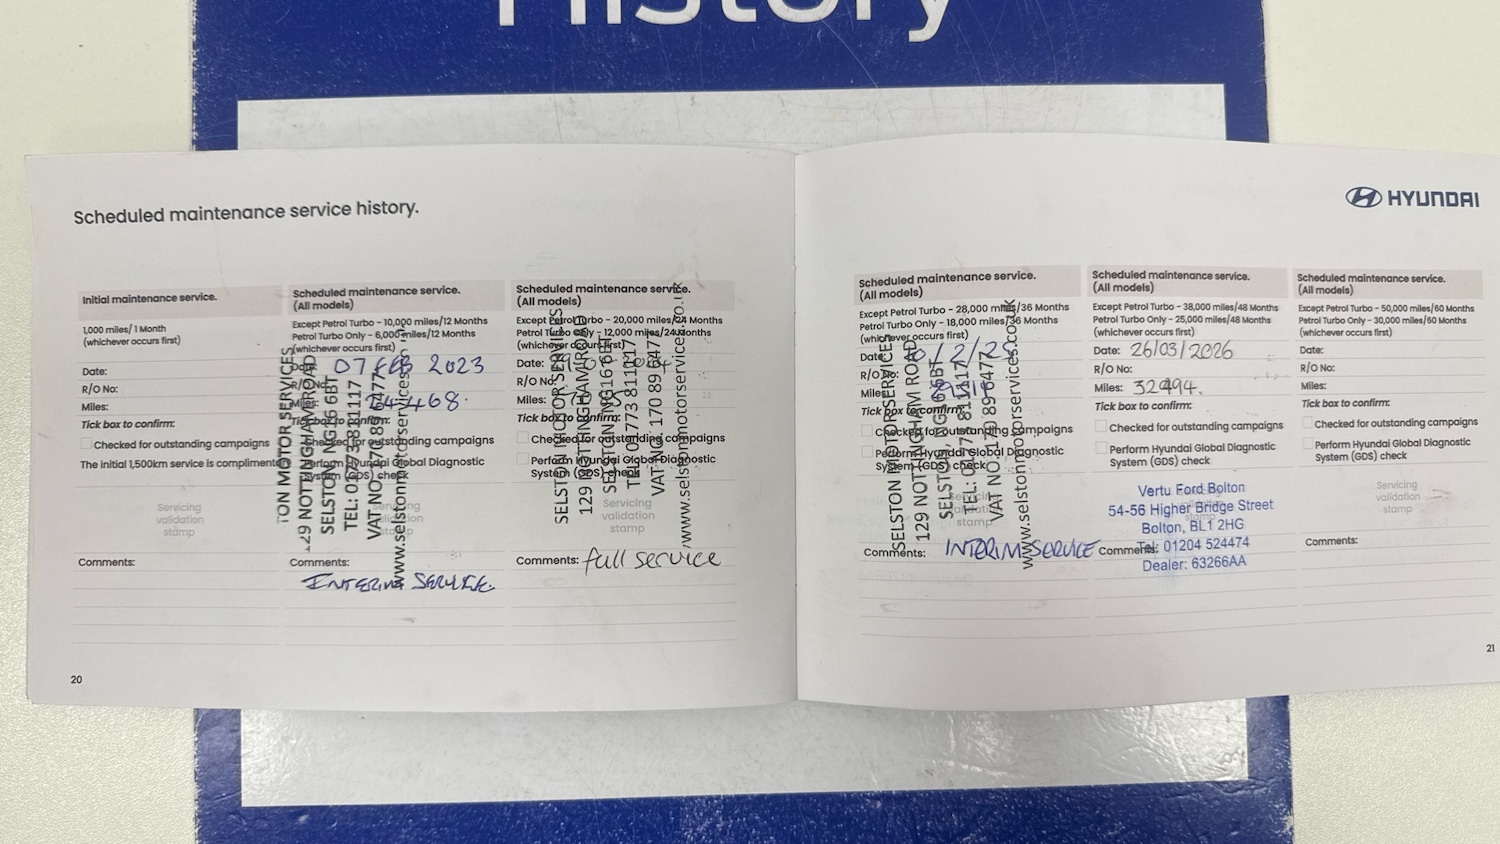 History
Scheduled maintenance service history.
HYUNDAI
Initial maintenance service.
1,000 miles/ 1 Month
(whichever occurs first)
Date:
R/O No:
Miles:
Tick box to confirm:
Checked for outstanding campaigns
The initial 1,500km service is compliment
Servicing
validation
stamp
Comments:
Scheduled maintenance service.
(All models)
Except Petrol Turbo - 10,000 miles/12 Months
Petrol Turbo Only - 6,000 miles/12 Months
(whichever occurs first)
Date: 07 FEB 2023
R/O No:
Miles:
Tick box to confirm:
Checked for outstanding campaigns
Perform Hyundai Global Diagnostic
System (GDS) check
TON MOTOR SERVICES
129 NOTTINGHAM ROAD
SELSTON NG16 6BT
TEL: 01773 811117
VAT NO. 170 89 6477
www.selstonmotorservices.
Comments:
INTERIM SERVICE.
Scheduled maintenance service.
(All models)
Except Petrol Turbo - 20,000 miles/24 Months
Petrol Turbo Only - 12,000 miles/24 Months
(whichever occurs first)
Date:
R/O No:
Miles:
Tick box to confirm:
Checked for outstanding campaigns
Perform Hyundai Global Diagnostic
System (GDS) check
SELSTON MOTOR SERVICES
129 NOTTINGHAM ROAD
SELSTON NG16 6BT
TEL: 01773 811117
VAT NO. 170 89 6477
www.selstonmotorservices.co.uk
Servicing
validation
stamp
Comments: full service
20
Scheduled maintenance service.
(All models)
Except Petrol Turbo - 28,000 miles/36 Months
Petrol Turbo Only - 18,000 miles/36 Months
(whichever occurs first)
Date: /2/25
R/O No:
Miles:
Tick box to confirm:
Checked for outstanding campaigns
Perform Hyundai Global Diagnostic
System (GDS) check
SELSTON MOTOR SERVICES
129 NOTTINGHAM ROAD
SELSTON NG16 6BT
TEL: 01773 811117
VAT NO. 170 89 6477
www.selstonmotorservices.co.uk
Servicing
validation
stamp
Comments: INTERIM SERVICE
Scheduled maintenance service.
(All models)
Except Petrol Turbo - 38,000 miles/48 Months
Petrol Turbo Only - 25,000 miles/48 Months
(whichever occurs first)
Date: 26/03/2026
R/O No:
Miles: 32494.
Tick box to confirm:
Checked for outstanding campaigns
Perform Hyundai Global Diagnostic
System (GDS) check
Vertu Ford Bolton
54-56 Higher Bridge Street
Bolton, BL1 2HG
Tel: 01204 524474
Dealer: 63266AA
Comments:
Scheduled maintenance service.
(All models)
Except Petrol Turbo - 50,000 miles/60 Months
Petrol Turbo Only - 30,000 miles/60 Months
(whichever occurs first)
Date:
R/O No:
Miles:
Tick box to confirm:
Checked for outstanding campaigns
Perform Hyundai Global Diagnostic
System (GDS) check
Servicing
validation
stamp
Comments:
21